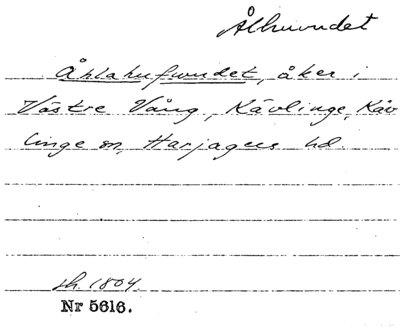 Ålhuvudet
Åhlahufwudet, åker i
Västre Vång, Kävlinge, Käv
linge sn, Harjagers hd.
sk. 1804
Nr 5616.